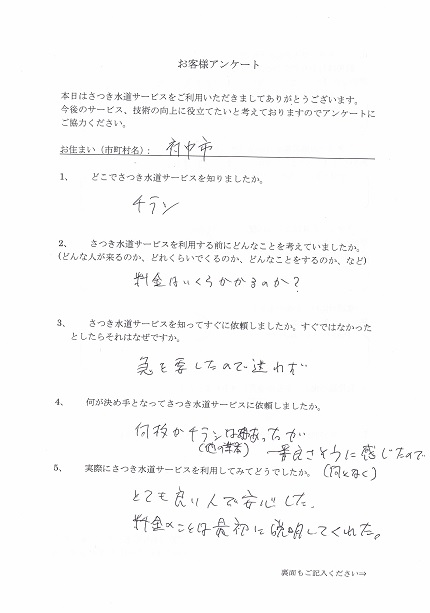 お客様アンケート
本日はさつき水道サービスをご利用いただきましてありがとうございます。
今後のサービス、技術の向上に役立てたいと考えておりますのでアンケートに
ご協力ください。
お住まい（市町村名）： 府中市
1、 どこでさつき水道サービスを知りましたか。
チラシ
2、 さつき水道サービスを利用する前にどんなことを考えていましたか。
(どんな人が来るのか、どれくらいでくるのか、どんなことをするのか、など)
料金はいくらかかるのか？
3、 さつき水道サービスを知ってすぐに依頼しましたか。すぐではなかった
としたらそれはなぜですか。
急を要したので迷わず
4、 何が決め手となってさつき水道サービスに依頼しましたか。
何枚かチラシはあったが
(他の業者) 一番良さそうに感じたので
5、 実際にさつき水道サービスを利用してみてどうでしたか。 (何となく)
とても良い人で安心した。
料金のことは最初に説明してくれた。
裏面もご記入ください⇒